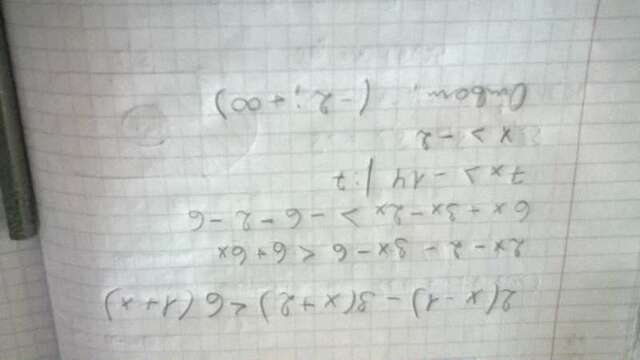 2(x-1)-3(x+2)<6(1+x)
2x-2-3x-6<6+6x
6x+3x-2x>-6-2-6
7x>-14 |:7
x>-2
Ответ: (-2;+∞)